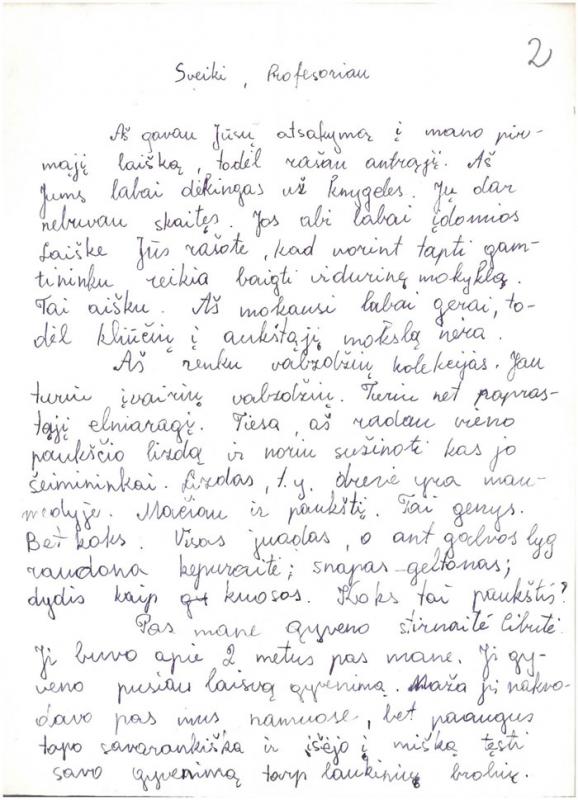 2
Sveiki, Profesoriau
Aš gavau Jūsų atsakymą į mano pir-
mąjį laišką, todėl rašau antrąjį. Aš
Jums labai dėkingas už knygeles. Jų dar
nebuvau skaitęs. Jos abi labai įdomios
Laiške Jūs rašote, kad norint tapti gam-
tininku reikia baigti vidurinę mokyklą.
Tai aišku. Aš mokausi labai gerai, to-
dėl kliūčių į aukštąjį mokslą nėra.
Aš renku vabzdžių kolekcijas. Jau
turiu įvairių vabzdžių. Turiu net papras-
tąjį elniaragį. Tiesa, aš radau vieno
paukščio lizdą ir noriu sužinoti kas jo
šeimininkai. Lizdas, t.y. drevė yra mau-
medyje. Mačiau ir paukštį. Tai genys.
Bet koks. Visas juodas, o ant galvos lyg
raudona kepuraitė; snapas geltonas;
dydis kaip kuosos. Koks tai paukštis?
Pas mane gyveno stirnaitė Cibutė.
Ji buvo apie 2 metus pas mane. Ji gy-
veno pusiau laisvą gyvenimą. Maža ji nakvo-
davo pas mus namuose, bet paaugus
tapo savarankiška ir išėjo į mišką tęsti
savo gyvenimą tarp laukinių brolių.